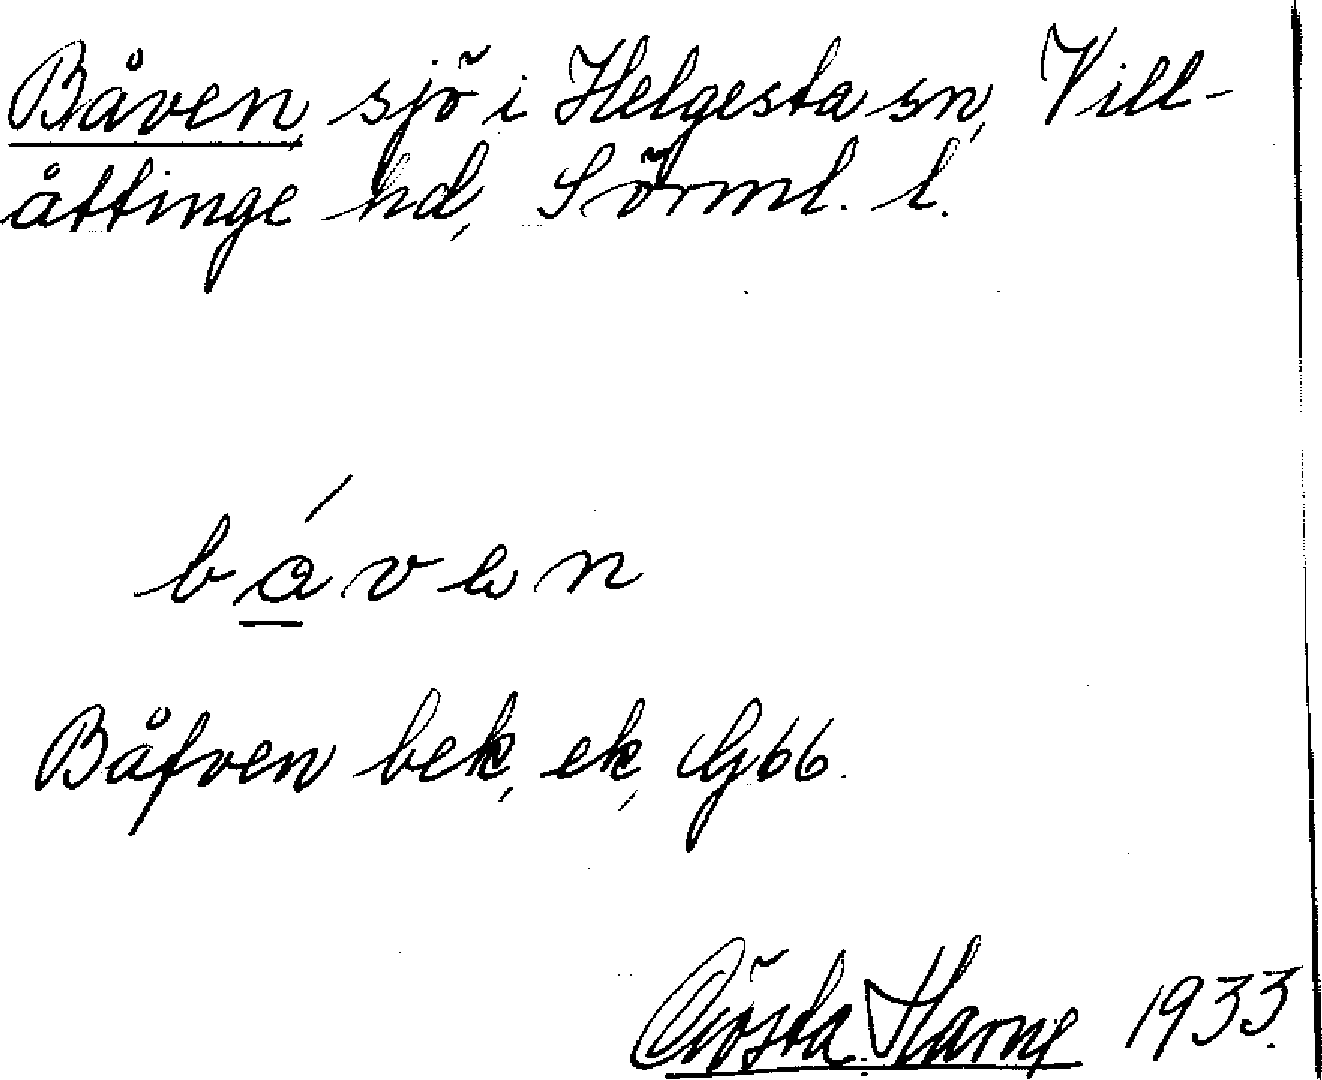 Båven, sjö i Helgesta sn, Vill-
åttinge hd, Sörml. l.
båven
Båfven bek, ek, G66.
Gösta Harng 1933.